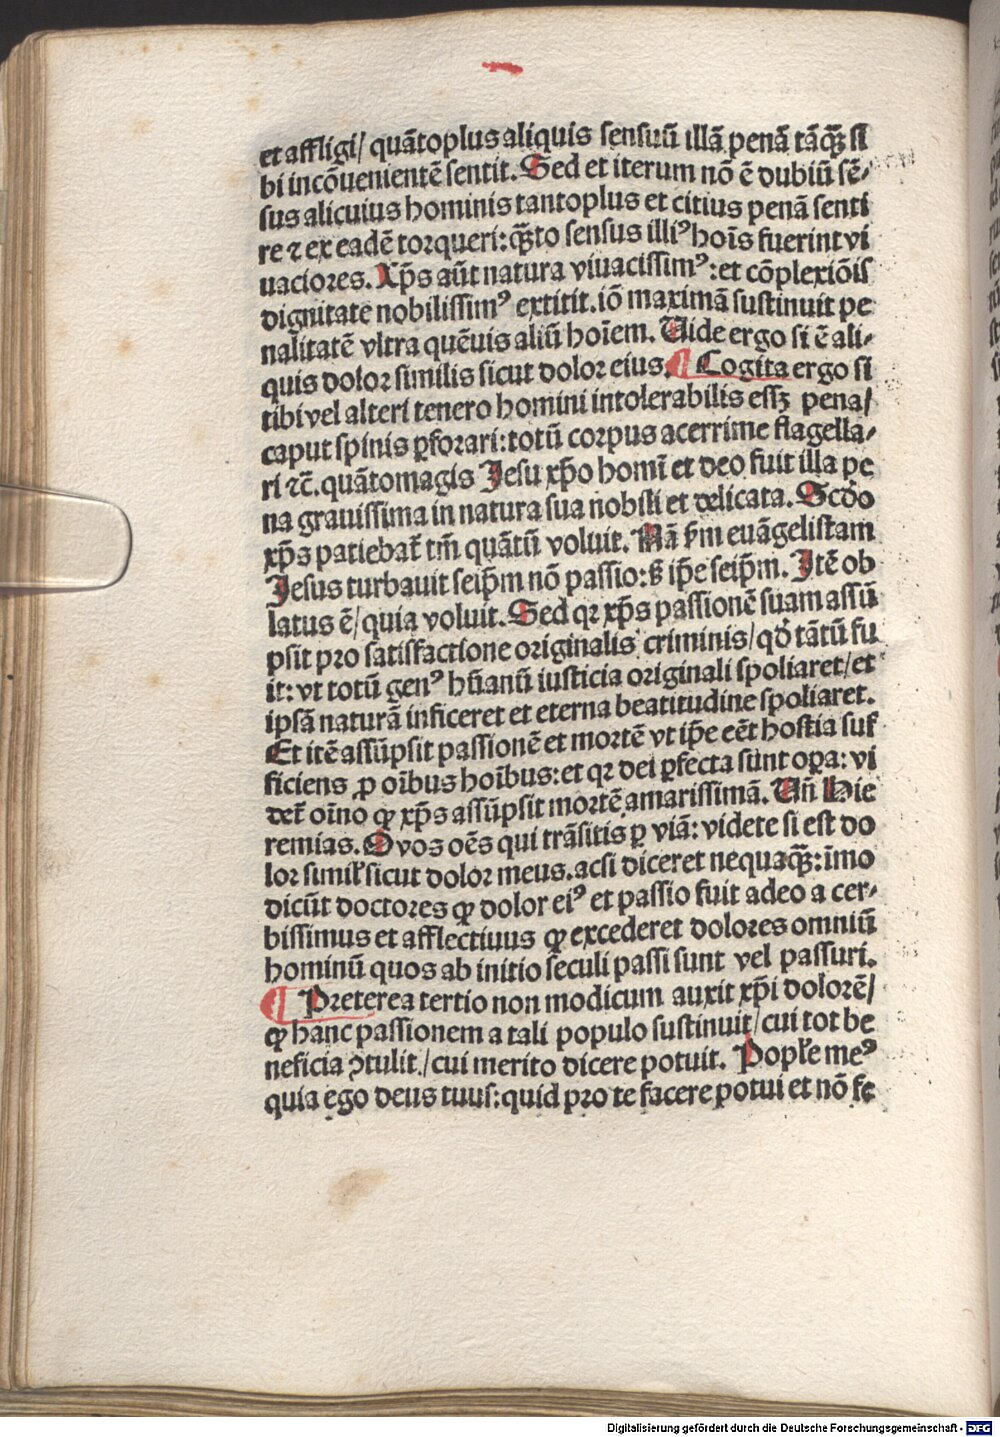 et affligi/ quātoplus aliquis sensuū illā penā tāqꝫ si
bi incōuenientē sentit. Sed et iterum nō ē dubiū sē⸗
sus alicuius hominis tantoplus et citius penā senti
re ⁊ ex eadē torqueri: qꝫto sensus illiꝰ hoīs fuerint vi
uaciores. Xp̄s aūt natura viuacissimꝰ: et cōplexiōis
dignitate nobilissimꝰ extitit. iō maximā sustinuit pe
nalitatē vltra quēuis aliū hoīem. Uide ergo si ē ali⸗
quis dolor similis sicut dolor eius. ¶ Cogita ergo si
tibi vel alteri tenero homini intolerabilis essꝫ pena/
caput spinis ꝑforari: totū corpus acerrime flagella⸗
ri ⁊c̄. quātomagis Jesu xp̄o homī et deo fuit illa pe
na grauissima in natura sua nobili et delicata. Scd̄o
xp̄s patiebat̄ tm̄ quātū voluit. Nā ẜm euāgelistam
Jesus turbauit seip̄m nō passio: ẜ ip̄e seip̄m. Jtē ob
latus ē/ quia voluit. Sed qꝛ xp̄s passionē suam assū
psit pro satisfactione originalis criminis/ qd̄ tātū fu
it: vt totū genꝰ hūanū iusticia originali spoliaret/ et
ipsā naturā inficeret et eterna beatitudine spoliaret.
Et itē assūpsit passionē et mortē vt ip̄e eēt hostia suf
ficiens ꝓ oībus hoībus: et qꝛ dei ꝑfecta sunt oꝑa: vi
det̄ oīno ꝙ xp̄s assūpsit mortē amarissimā. Un̄ Hie
remias. O vos oēs qui trāsitis ꝑ viā: videte si est do
lor simil̄ sicut dolor meus. acsi diceret nequaqꝫ: īmo
dicūt doctores ꝙ dolor eiꝰ et passio fuit adeo a cer⸗
bissimus et afflectiuus ꝙ excederet dolores omniū
hominū quos ab initio seculi passi sunt vel passuri.
¶ Preterea tertio non modicum auxit xp̄i dolorē/
ꝙ hanc passionem a tali populo sustinuit/ cui tot be
neficia ꝯtulit/ cui merito dicere potuit. Popl̄e meꝰ
quia ego deus tuus: quid pro te facere potui et nō fe
Digitalisierung gefördert durch die Deutsche Forschungsgemeinschaft - DFG